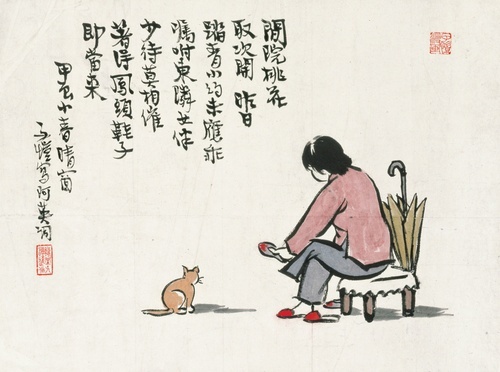 閒院桃花
取次開 昨日
踏青小約未應乖
囑咐東隣女伴
少待莫相催
著得鳳頭鞋子
即當來
甲辰小春晴窗
子愷寫阿英詞